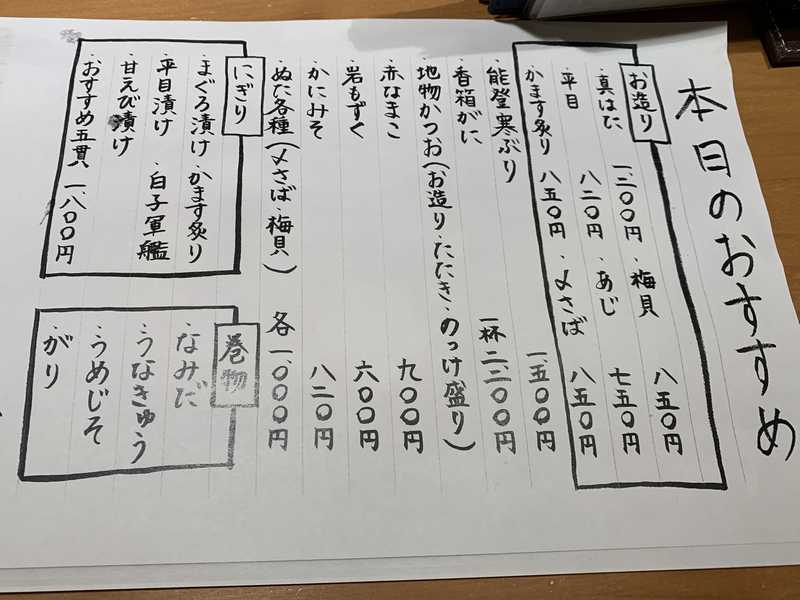 本日のおすすめ
お造り
・真はた 一、二〇〇円 ・梅貝 八五〇円
・平目 八二〇円 ・あじ 七五〇円
・かます炙り 八五〇円 ・〆さば 八五〇円
・能登寒ぶり 一、五〇〇円
・香箱がに 一杯 二、二〇〇円
・地物かつお(お造り・たたき・のっけ盛り)
・赤なまこ 九〇〇円
・岩もずく 六〇〇円
・かにみそ 八二〇円
・ぬた各種(〆さば・梅貝) 各一、〇〇〇円
にぎり
・まぐろ漬け・かます炙り
・平目漬け ・白子軍艦
・甘えび漬け
・おすすめ五貫 一、八〇〇円
巻物
・なみだ
・うなきゅう
・うめじそ
・がり